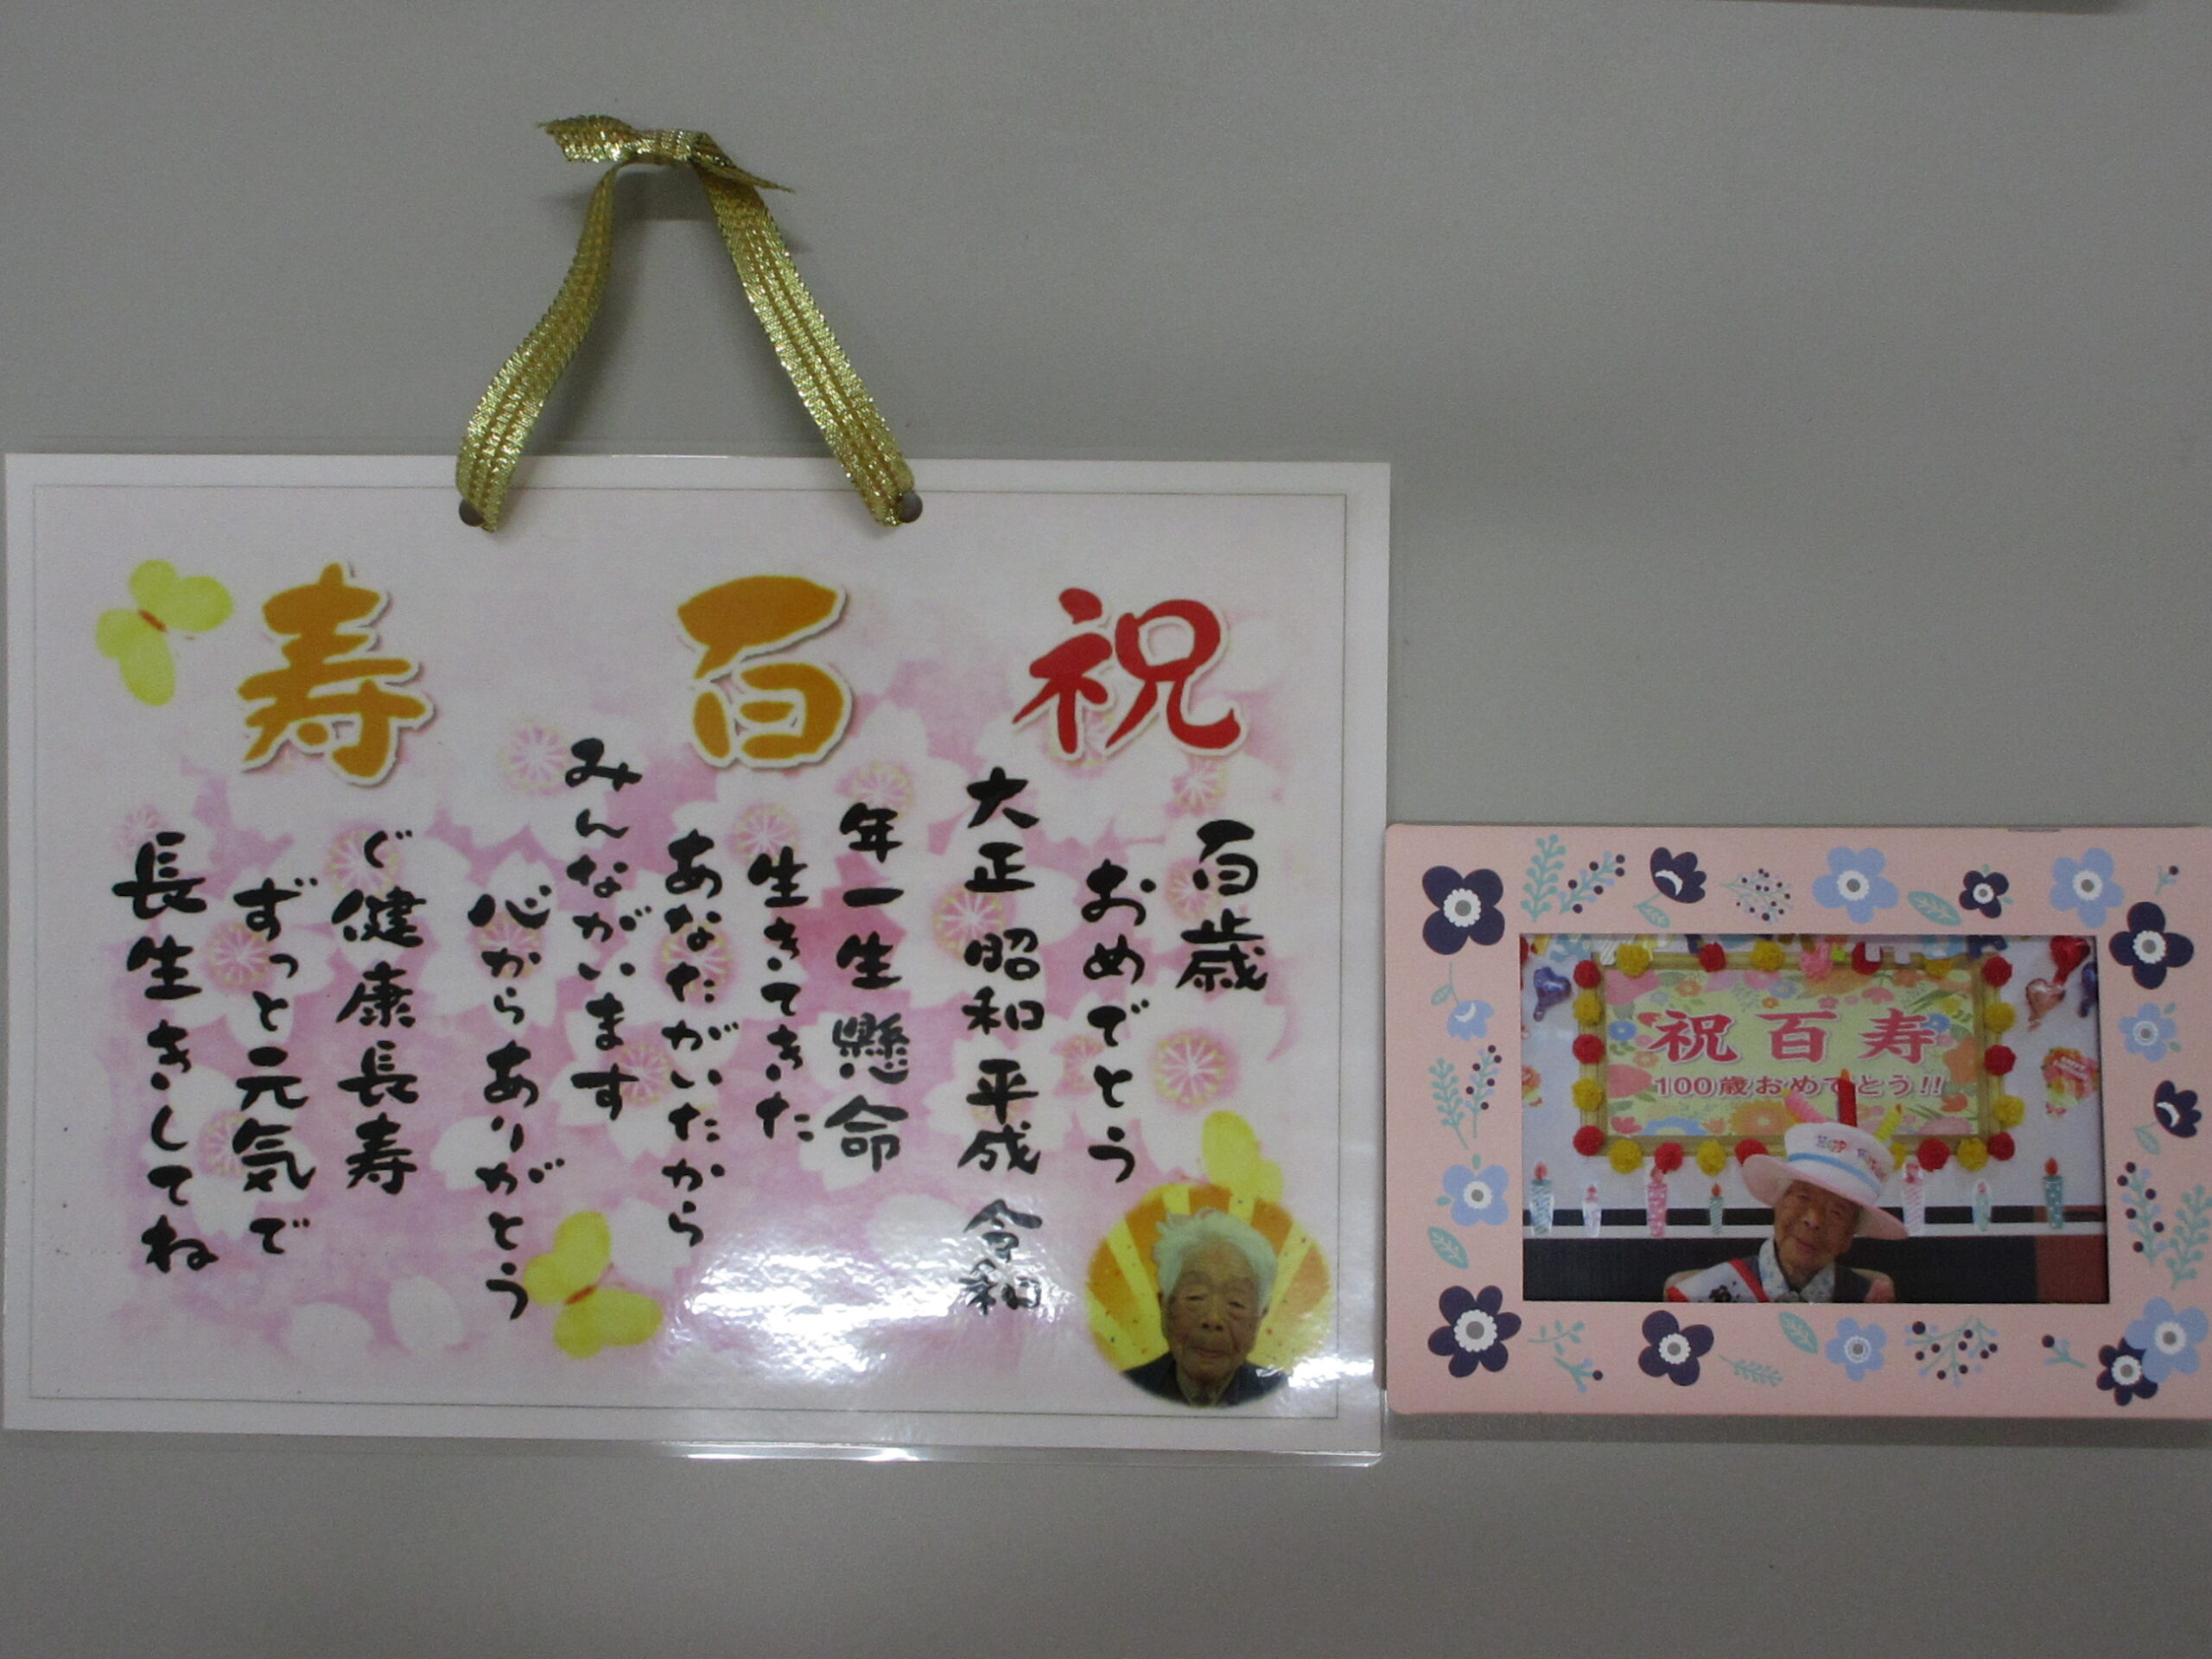 祝百寿
百歳
おめでとう
大正昭和平成令和
年一生懸命
生きてきた
あなたがいたから
みんながいます
心からありがとう
ご健康長寿
ずっと元気で
長生きしてね
祝百寿
100歳おめでとう!!